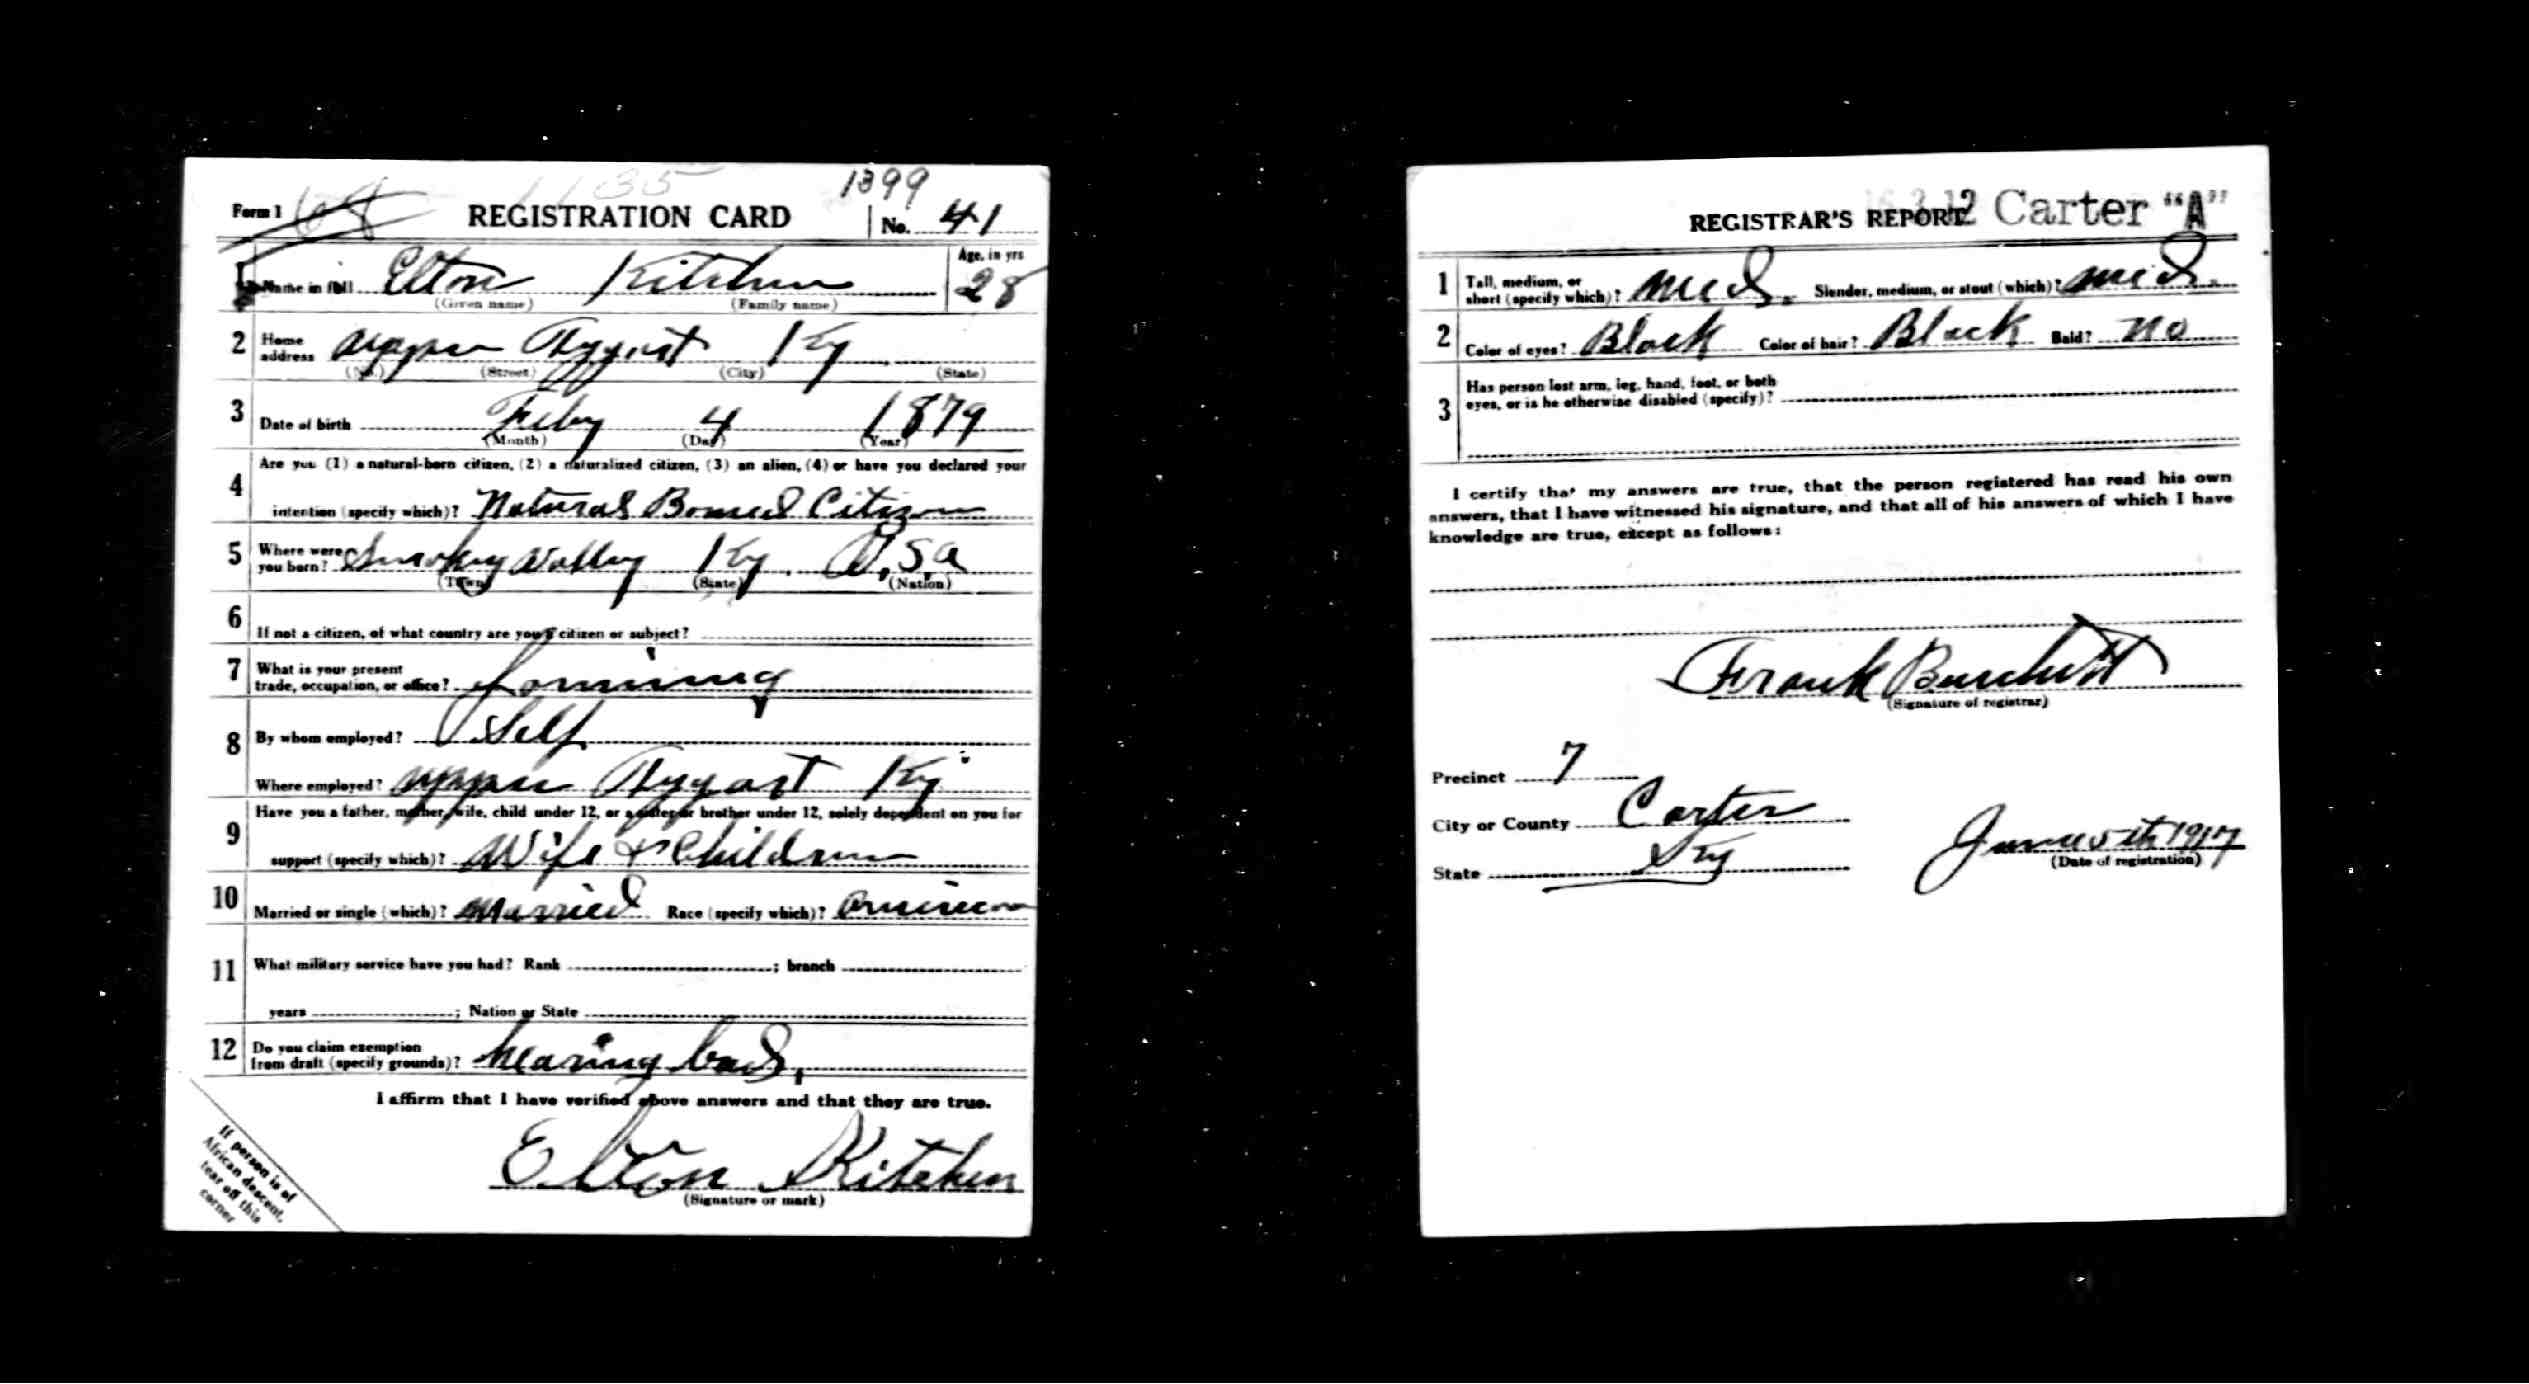 1135
1399
Form 1 REGISTRATION CARD No. 41
1 Name in full Elton Kitchen Age, in yrs 28
(Given name) (Family name)
2 Home address upper Tygart Ky
(No.) (Street) (City) (State)
3 Date of birth Feby 4 1879
(Month) (Day) (Year)
4 Are you (1) a natural-born citizen, (2) a naturalized citizen, (3) an alien, (4) or have you declared your
intention (specify which)? Natural Borned Citizen
5 Where were you born? Smokey Valley Ky. U.S.a
(Town) (State) (Nation)
6 If not a citizen, of what country are you a citizen or subject?
7 What is your present
trade, occupation, or office? Farming
8 By whom employed? Self
Where employed? upper Tygart Ky
9 Have you a father, mother, wife, child under 12, or a sister or brother under 12, solely dependent on you for
support (specify which)? Wife & Children
10 Married or single (which)? Married Race (specify which)? American
11 What military service have you had? Rank ; branch
years ; Nation or State
12 Do you claim exemption
from draft (specify grounds)? hearing bad,
I affirm that I have verified above answers and that they are true.
Elton Kitchen
(Signature or mark)
If person is of
African descent,
tear off this
corner
REGISTRAR'S REPORT Carter "A"
1 Tall, medium, or
short (specify which)? med. Slender, medium, or stout (which)? med.
2 Color of eyes? Black Color of hair? Black Bald? no
3 Has person lost arm, leg, hand, foot, or both
eyes, or is he otherwise disabled (specify)?
I certify that my answers are true, that the person registered has read his own
answers, that I have witnessed his signature, and that all of his answers of which I have
knowledge are true, except as follows:
Frank Burchett
(Signature of registrar)
Precinct 7
City or County Carter
State Ky
June 5th 1917
(Date of registration)